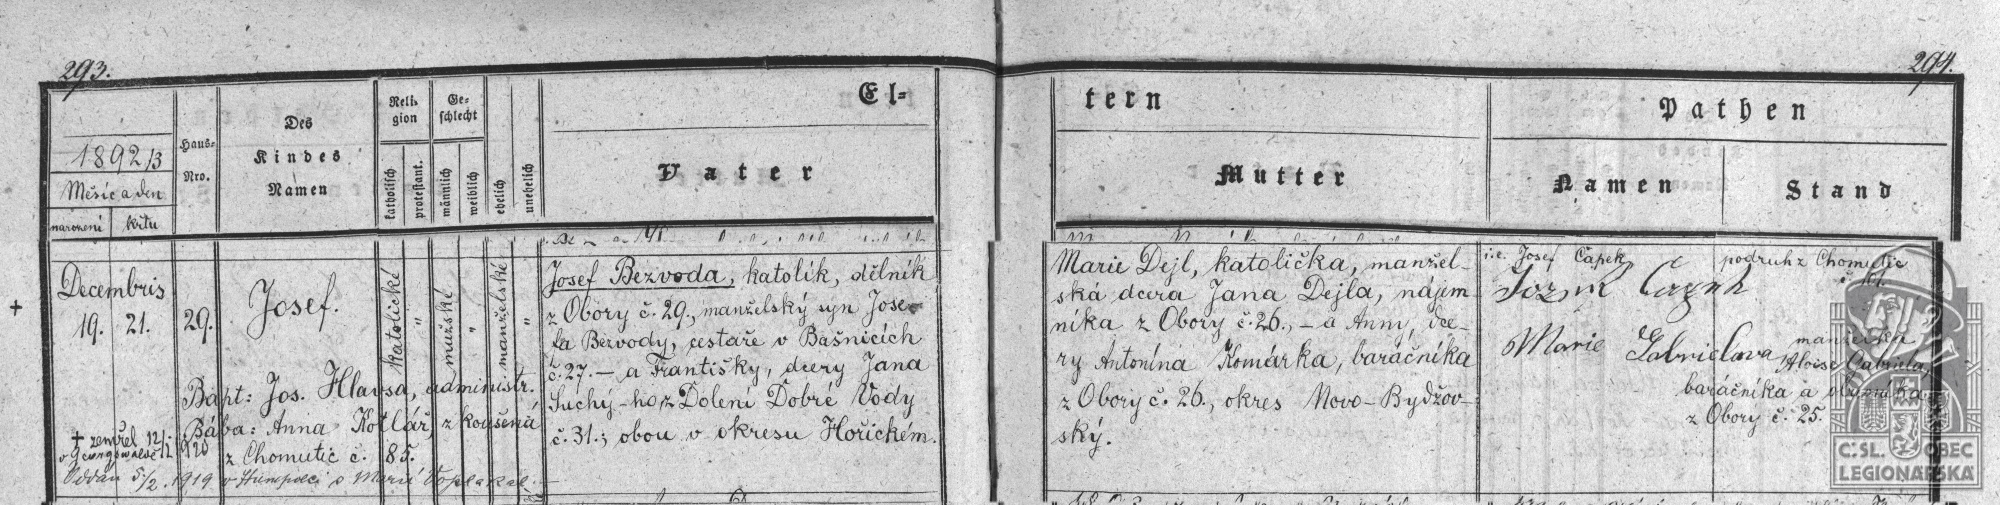 293.
294.
El-
tern
Pathen
1892/3
Měsíc a den
narození
křtu
Haus-
Nro.
Des
Kindes
Namen
Reli-
gion
Ge-
schlecht
katholisch
protestant.
männlich
weiblich
ehelich
unehelich
Vater
Mutter
Namen
Stand
Decembris
19. 21.
29.
Josef.
katolické
"
mužské
"
manželské
"
Josef Bezvoda, katolík, dělník
z Obory č. 29., manželský syn Jose-
fa Bezvody, cestáře v Bašnicích
č. 27. – a Františky, dcery Jana
Suchý-ho, z Dolení Dobré Vody
č. 31.; obou v okresu Hořickém.
Marie Dejl, katolička, manžel-
ská dcera Jana Dejla, nájem-
níka z Obory č. 26., – a Anny, dce-
ry Antonína Komárka, baráčníka
z Obory č. 26., okres Novo-Bydžov-
ský.
i.e. Josef Čapek
Josef Čapek
podruh z Chomutic
Marie Gabrielova
manželka
Aloise Gabriela,
baráčníka a
z Obory č. 25.
Bapt: Jos. Hlavsa, administr.
Bába: Anna Kotlář, z koušená
z Chomutic č. 85.
+ zemřel 12/1 1920
Oddán 5/2 1919 v Humpolci s Marií
ČSL. OBEC
LEGIONÁŘSKÁ